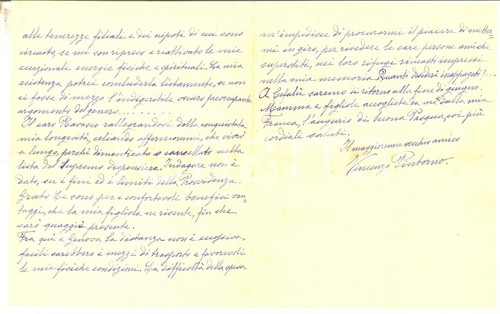 alle tenerezze filiali e dei nipoti di cui sono
circuito, se mi son ripreso e riattivato le mie
eccezionali energie fisiche e spirituali. La mia
esistenza potrei concluderla lietamente, se non
ci fosse di mezzo l'indigeribile oscuro preoccupante
argomento del genero.........
Il caro Ravasio rallegrandosi della conquistata
mia longevità, celiando affermommi, che vivrò
a lungo perchè dimenticato o cancellato nella
lista dal Supremo dispensiere. Indagare non è
dato, su i fini ed i limiti della Provvidenza.
Grato Le sono per i confortevoli benefici
taggi, che la mia figliola ne risente, fin che
sarò quaggiù presente.
Fra qui e Genova la distanza non è eccessiva,
facili sarebbero i mezzi di trasporto e favorevoli
le mie fisiche condizioni. La difficoltà della spesa
m'impedisce di procurarmi il piacere di metter
mi in giro, per rivedere le care persone amiche
superstiti, nei loro rimasti impressi
nella mia memoria. Quanti desideri inappagati!...
A Cefalù saremo di ritorno alla fine di giugno.
Mamma e figliole accogliete da me e dalla mia
Franca, l'augurio di buona Pasqua, coi più
cordiali saluti.
Il maggiorenne vecchio amico
Vincenzo Pintorno.